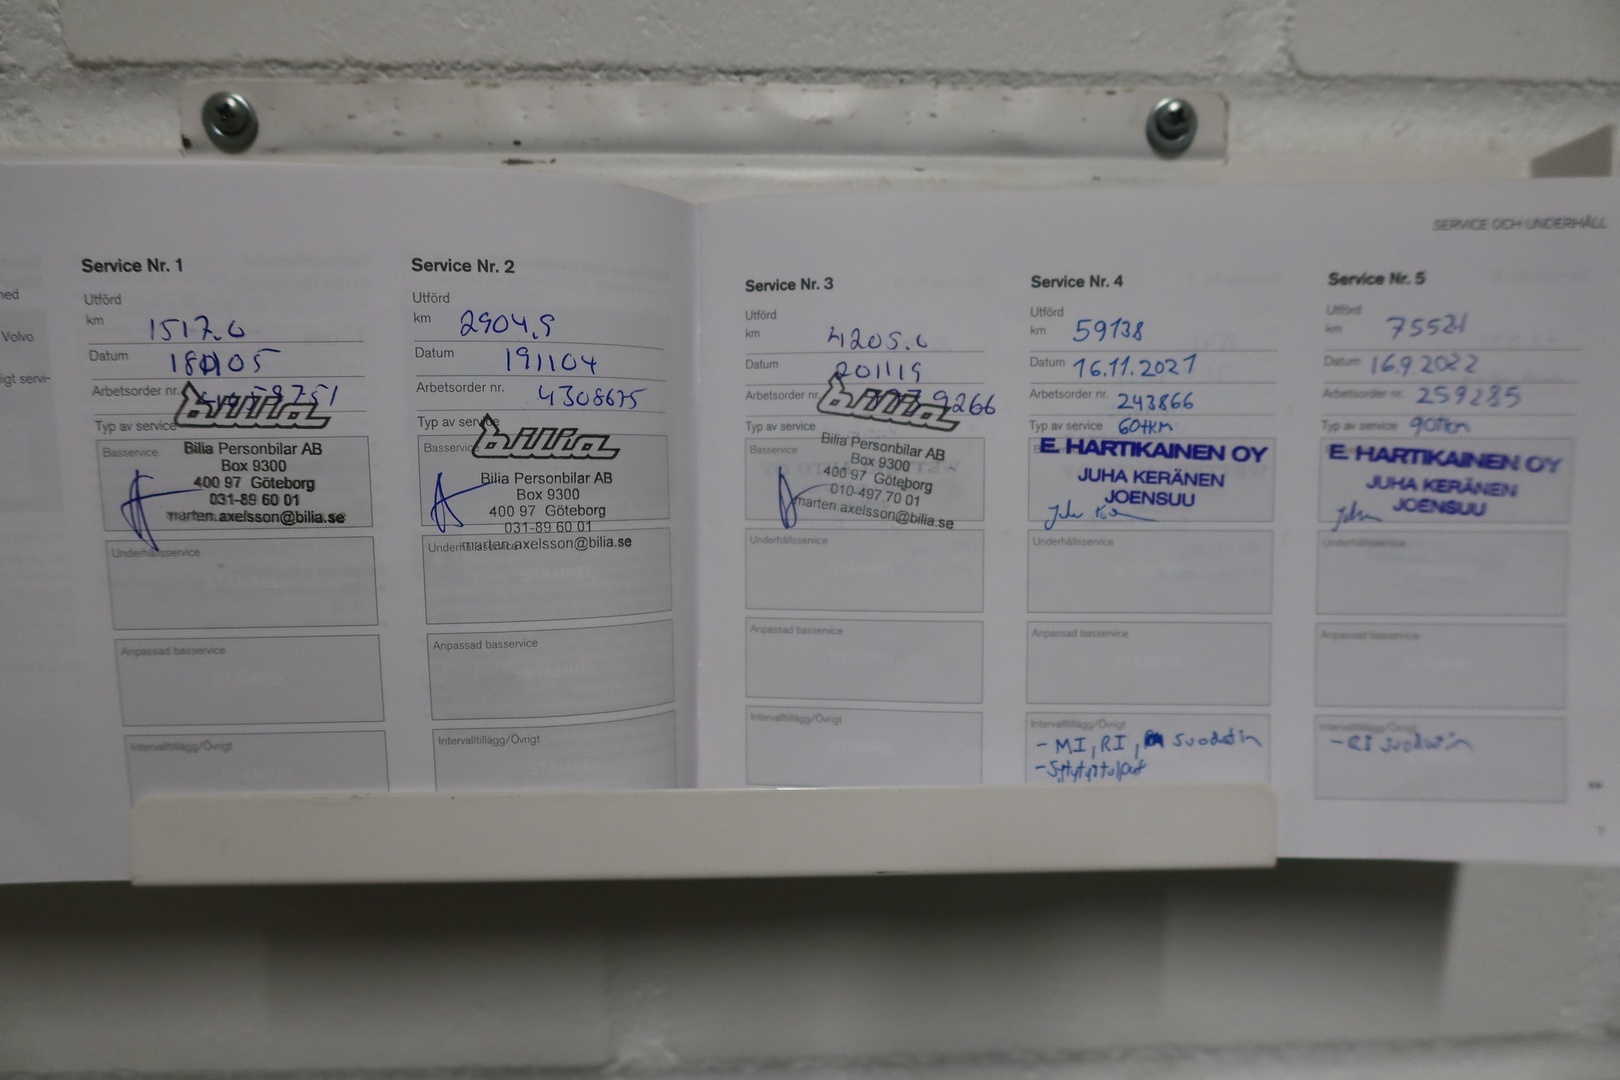 SERVICE OCH UNDERHÅLL
Volvo
Service Nr. 1
Utförd
km 1517.0
Datum 180105
Arbetsorder nr.
Typ av service
bilia
Basservice
Bilia Personbilar AB
Box 9300
400 97 Göteborg
031-89 60 01
marten.axelsson@bilia.se
Underhållsservice
Anpassad basservice
Intervalltillägg/Övrigt
Service Nr. 2
Utförd
km 2904,9
Datum 191104
Arbetsorder nr. 4308675
Typ av service
bilia
Basservice
Bilia Personbilar AB
Box 9300
400 97 Göteborg
031-89 60 01
marten.axelsson@bilia.se
Underhållsservice
Anpassad basservice
Intervalltillägg/Övrigt
Service Nr. 3
Utförd
km 4205.0
Datum 201119
Arbetsorder nr.
Typ av service
bilia
Basservice
Bilia Personbilar AB
Box 9300
400 97 Göteborg
010-497 70 01
marten.axelsson@bilia.se
Underhållsservice
Anpassad basservice
Intervalltillägg/Övrigt
Service Nr. 4
Utförd
km 59138
Datum 16.11.2021
Arbetsorder nr. 243866
Typ av service 60tkm
E. HARTIKAINEN OY
JUHA KERÄNEN
JOENSUU
Underhållsservice
Anpassad basservice
Intervalltillägg/Övrigt
- MI, RI, suodatin
- Sytytystulpat
Service Nr. 5
Utförd
km 75521
Datum 16.9.2022
Arbetsorder nr. 259285
Typ av service 90tkm
E. HARTIKAINEN OY
JUHA KERÄNEN
JOENSUU
Underhållsservice
Anpassad basservice
Intervalltillägg/Övrigt
- RI suodatin
7